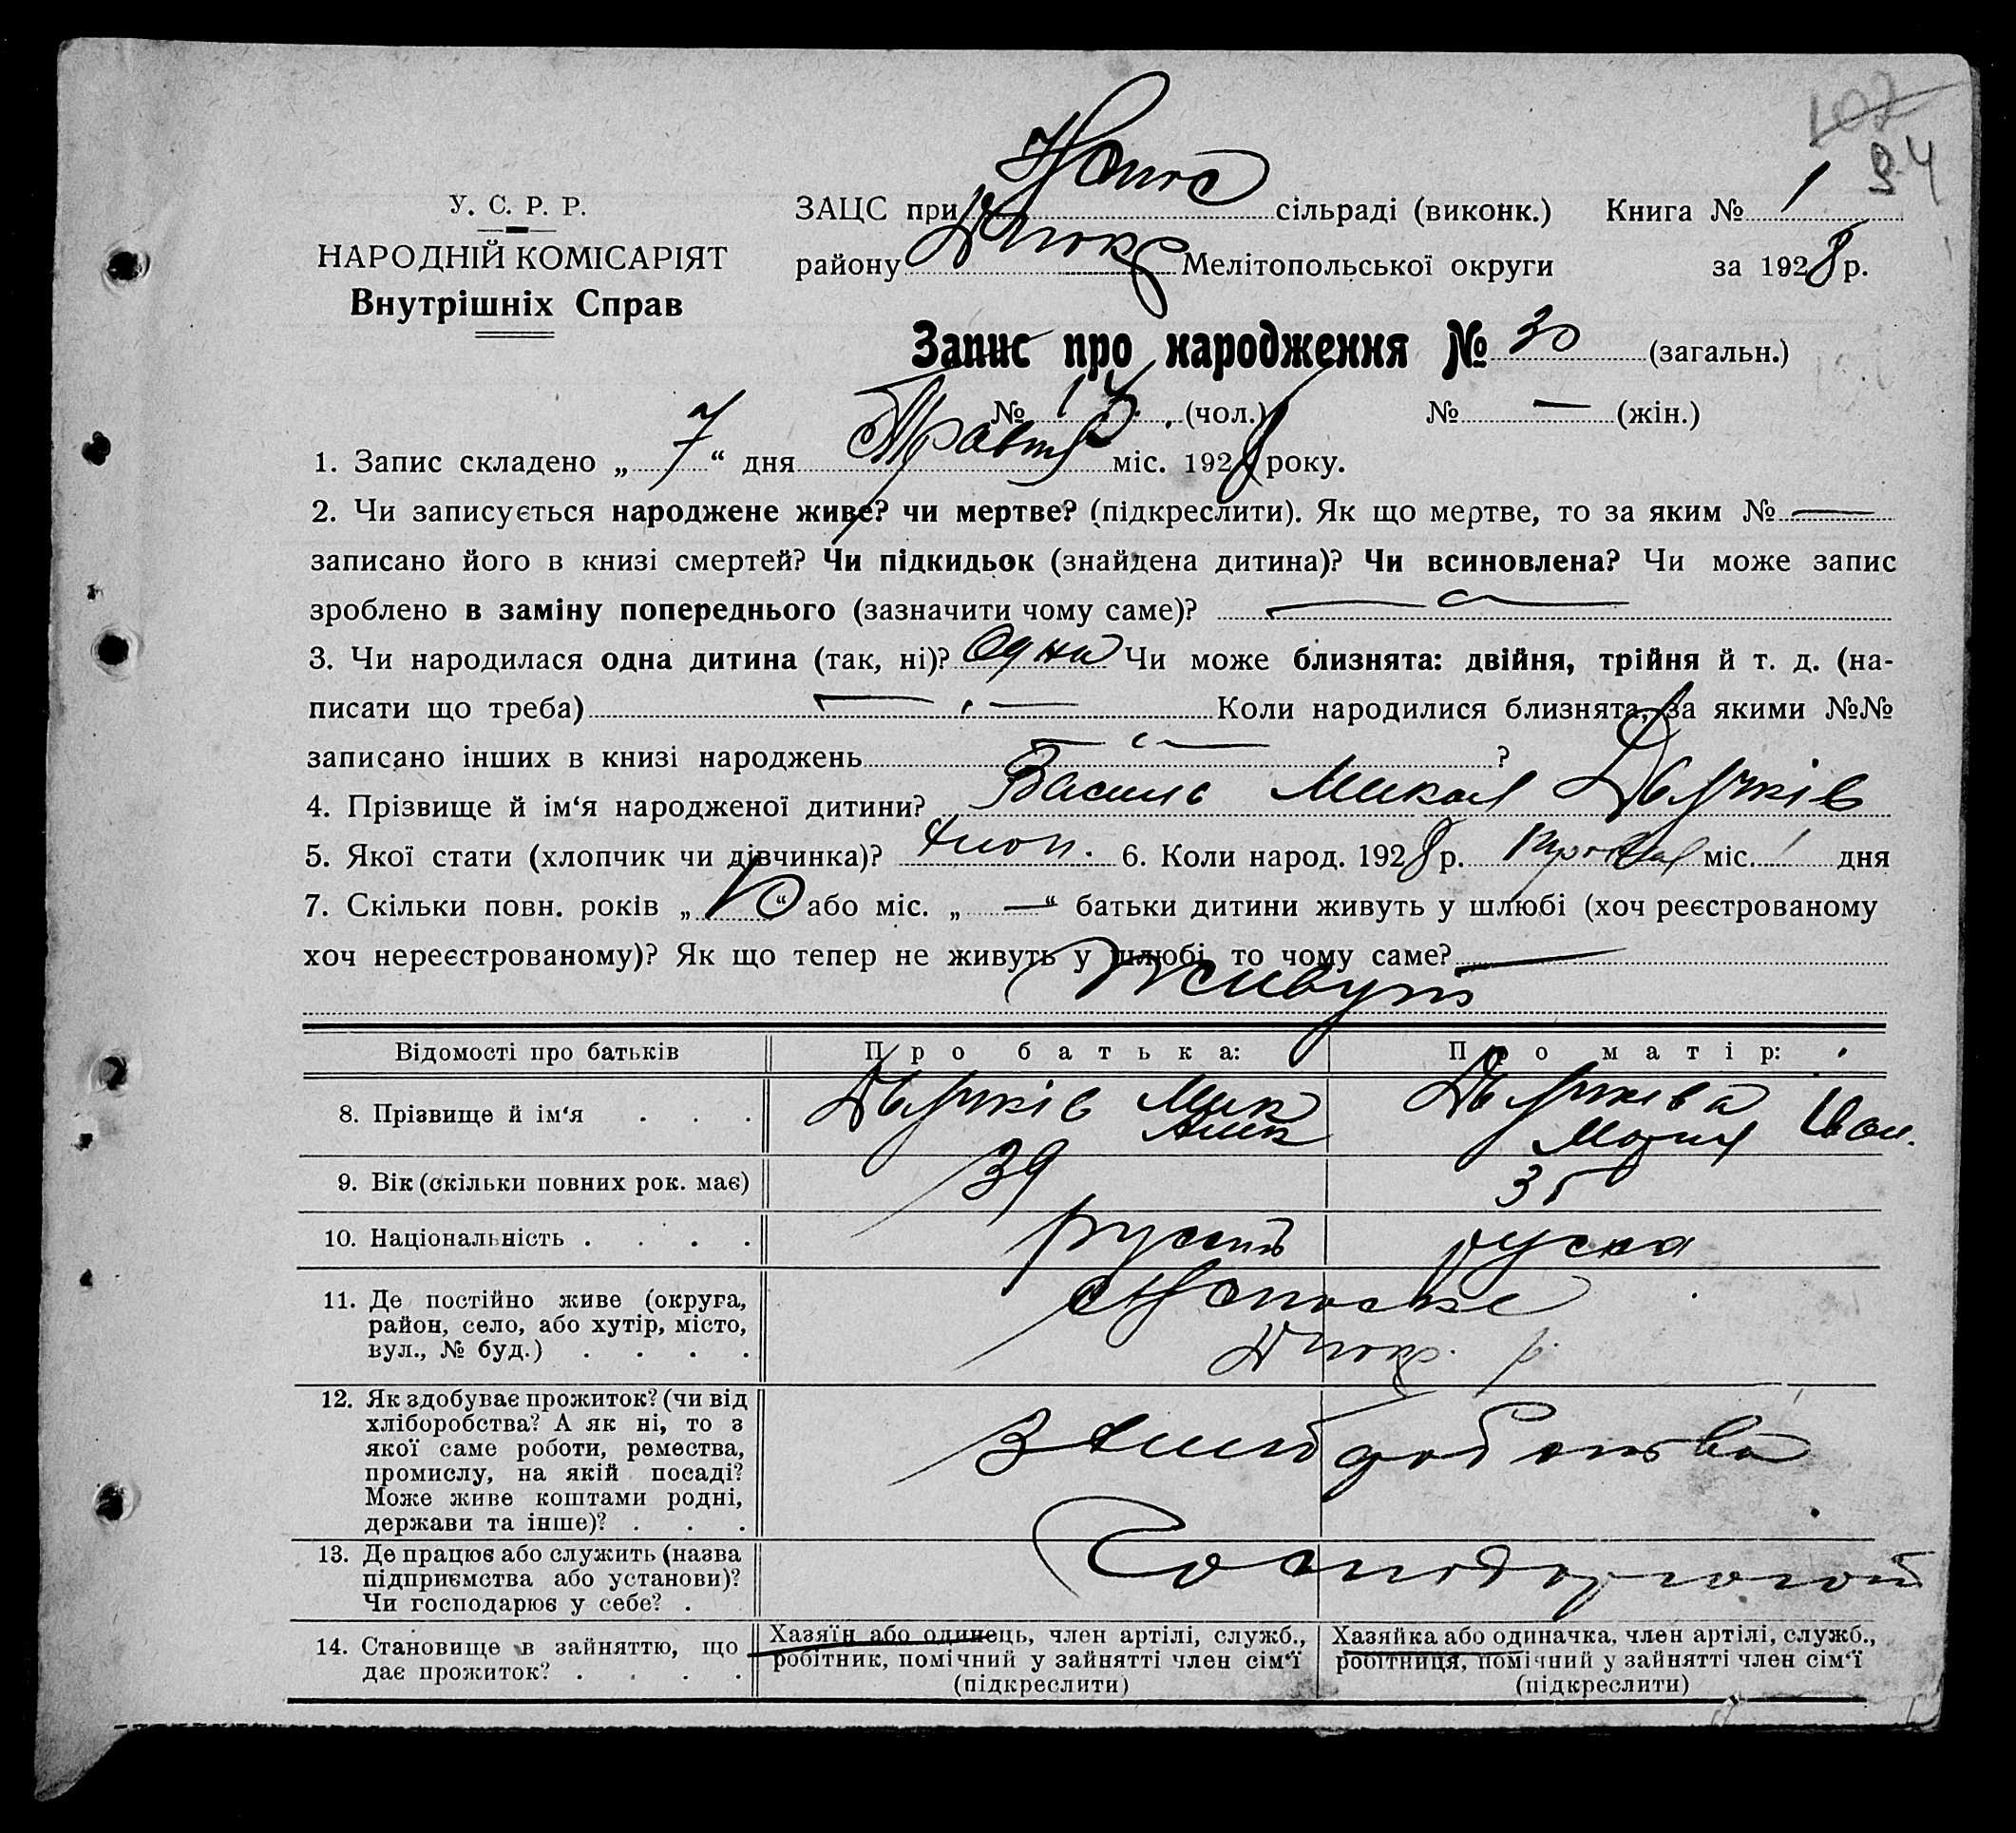 107
94
У. С. Р. Р.
НАРОДНІЙ КОМІСАРІЯТ
Внутрішніх Справ
ЗАЦС при сільраді (виконк.) Книга № 1
району Мелітопольської округи за 1928 р.
Запис про народження № 30 (загальн.)
№ (чол.) № — (жін.)
1. Запис складено „ 7 “ дня Травня міс. 1928 року.
2. Чи записується народжене живе? чи мертве? (підкреслити). Як що мертве, то за яким № —
записано його в книзі смертей? Чи підкидьок (знайдена дитина)? Чи всиновлена? Чи може запис
зроблено в заміну попереднього (зазначити чому саме)?
3. Чи народилася одна дитина (так, ні)? Одна Чи може близнята: двійня, трійня й т. д. (на-
писати що треба) Коли народилися близнята, за якими №№
записано інших в книзі народжень ?
4. Прізвище й ім‘я народженої дитини? Василь Микол
5. Якої стати (хлопчик чи дівчинка)? хлоп. 6. Коли народ. 1928 р. травня міс. 1 дня
7. Скільки повн. років „ “ або міс. „ — “ батьки дитини живуть у шлюбі (хоч реєстрованому
хоч нереєстрованому)? Як що тепер не живуть у шлюбі, то чому саме? —
Живуть
Відомості про батьків Про батька: Про матір:
8. Прізвище й ім‘я . . . Мик
9. Вік (скільки повних рок. має) 39 35
10. Національність . . . . руский руска
11. Де постійно живе (округа,
район, село, або хутір, місто,
вул., № буд.) . . . . р.
12. Як здобуває прожиток? (чи від
хліборобства? А як ні, то з
якої саме роботи, ремества,
промислу, на якій посаді?
Може живе коштами родні,
держави та інше)? . . .
З хліборобства
13. Де працює або служить (назва
підприємства або установи)?
Чи господарює у себе? .
14. Становище в зайняттю, що
дає прожиток? . . . .
Хазяїн або одинець, член артілі, служб.,
робітник, помічний у зайнятті член сім‘ї
(підкреслити)
Хазяйка або одиначка, член артілі, служб.,
робітниця, помічний у зайнятті член сім‘ї
(підкреслити)